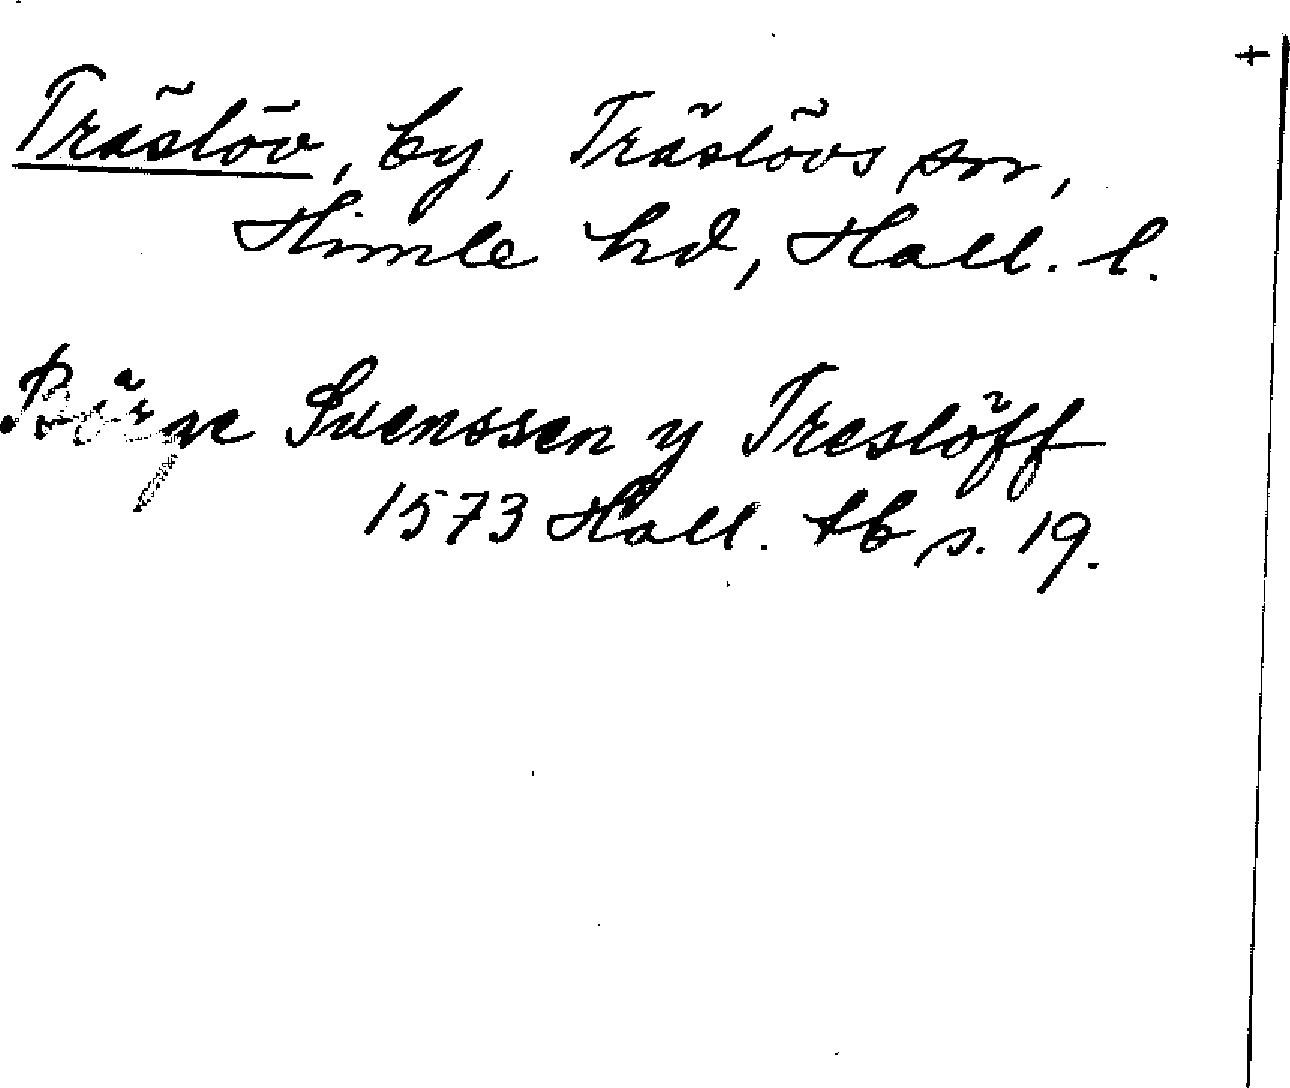 Träslöv, by, Träslövs sn,
Himle hd, Hall. l.
Börge Svenssen y Treslöff
1573 Hall. tb s. 19.